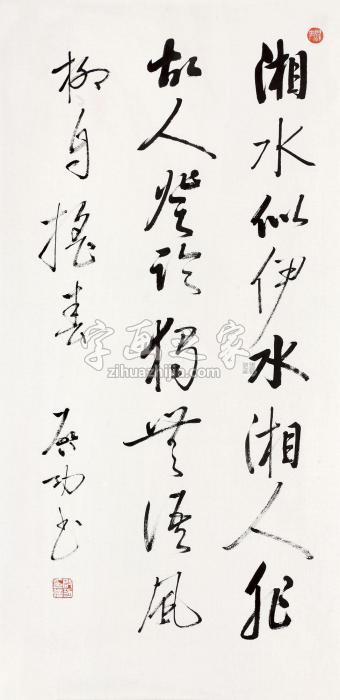 湘水似伊水湘人非
故人登臨獨無語風
柳自搖春
启功書
字画之家
www.zihuazhijia.com